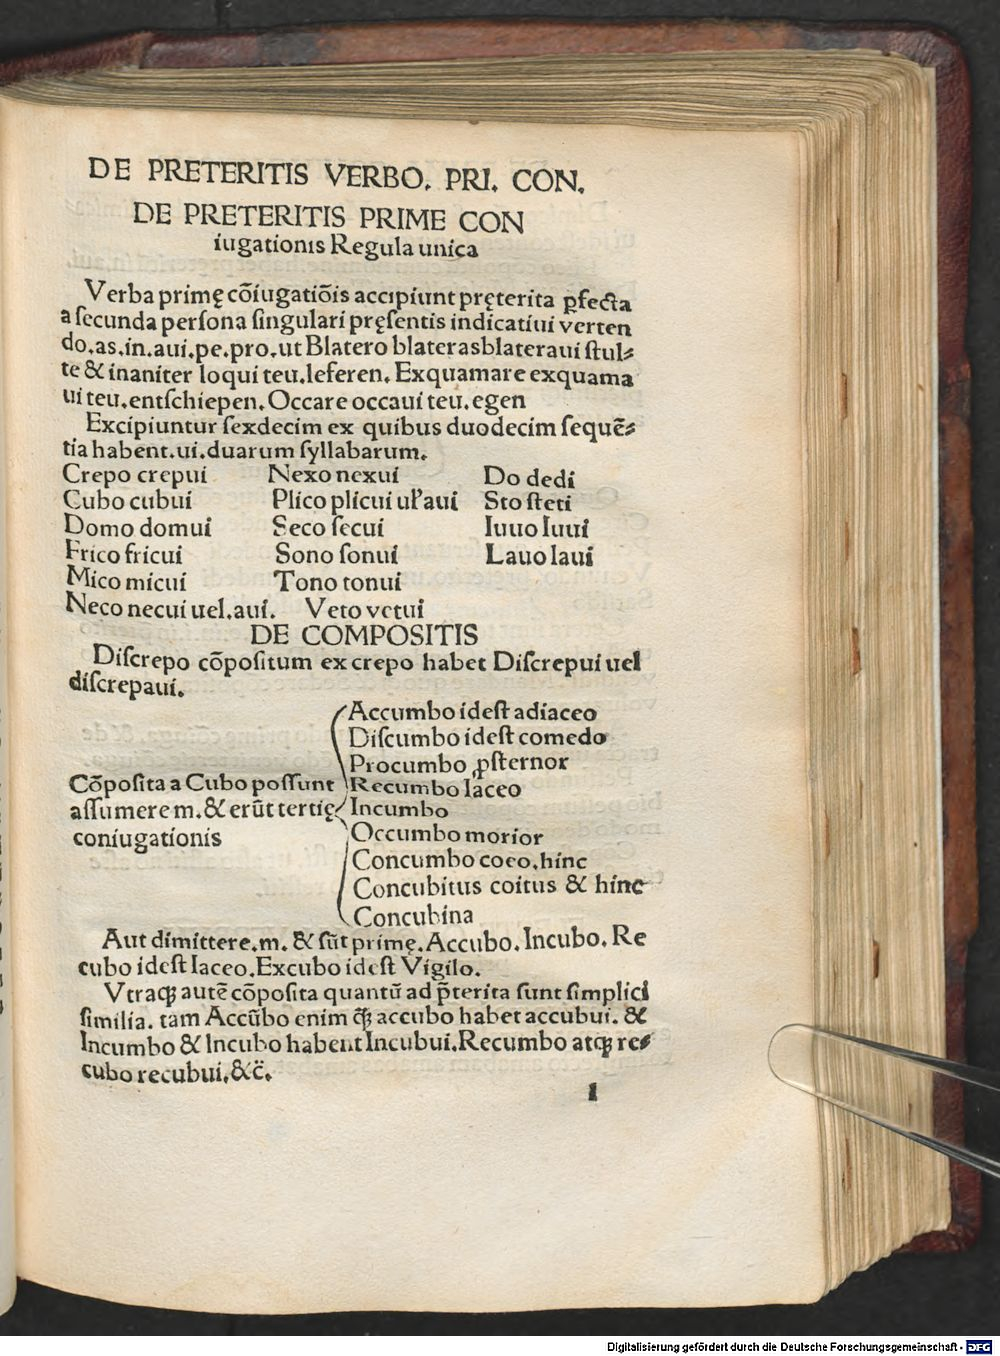 DE PRETERITIS VERBO. PRI. CON.
DE PRETERITIS PRIME CON
iugationis Regula unica
Verba primę cōiugatiōis accipiunt pręterita ꝑfecta
a ſecunda perſona ſingulari pręſentis indicatiui verten
do.as.in.aui.pe.pro.ut Blatero blateras blateraui ſtul⸗
te & inaniter loqui teu.leferen. Exquamare exquama
ui teu.entſchiepen. Occare occaui teu.egen
Excipiuntur ſexdecim ex quibus duodecim ſequē⸗
tia habent.ui.duarum ſyllabarum.
Crepo crepui Nexo nexui Do dedi
Cubo cubui Plico plicui uꝉ aui Sto ſteti
Domo domui Seco ſecui Iuuo Iuui
Frico fricui Sono ſonui Lauo laui
Mico micui Tono tonui
Neco necui uel.aui. Veto vetui
DE COMPOSITIS
Diſcrepo cōpoſitum ex crepo habet Diſcrepui uel
diſcrepaui.
Accumbo ideſt adiaceo
Diſcumbo ideſt comedo
Procumbo ꝓſternor
Cōpoſita a Cubo poſſunt Recumbo Iaceo
aſſumere m. & erūt tertię Incumbo
coniugationis Occumbo morior
Concumbo coeo.hinc
Concubitus coitus & hinc
Concubina
Aut dimittere.m. & ſūt primę. Accubo. Incubo. Re
cubo ideſt Iaceo. Excubo ideſt Vigilo.
Vtraqꝫ autē cōpoſita quantū ad p̄terita ſunt ſimplici
ſimilia. tam Accūbo enim q̄ꝫ accubo habet accubui. &
Incumbo & Incubo habent Incubui. Recumbo atqꝫ re⸗
cubo recubui.&c̄.
l
Digitalisierung gefördert durch die Deutsche Forschungsgemeinschaft - DFG